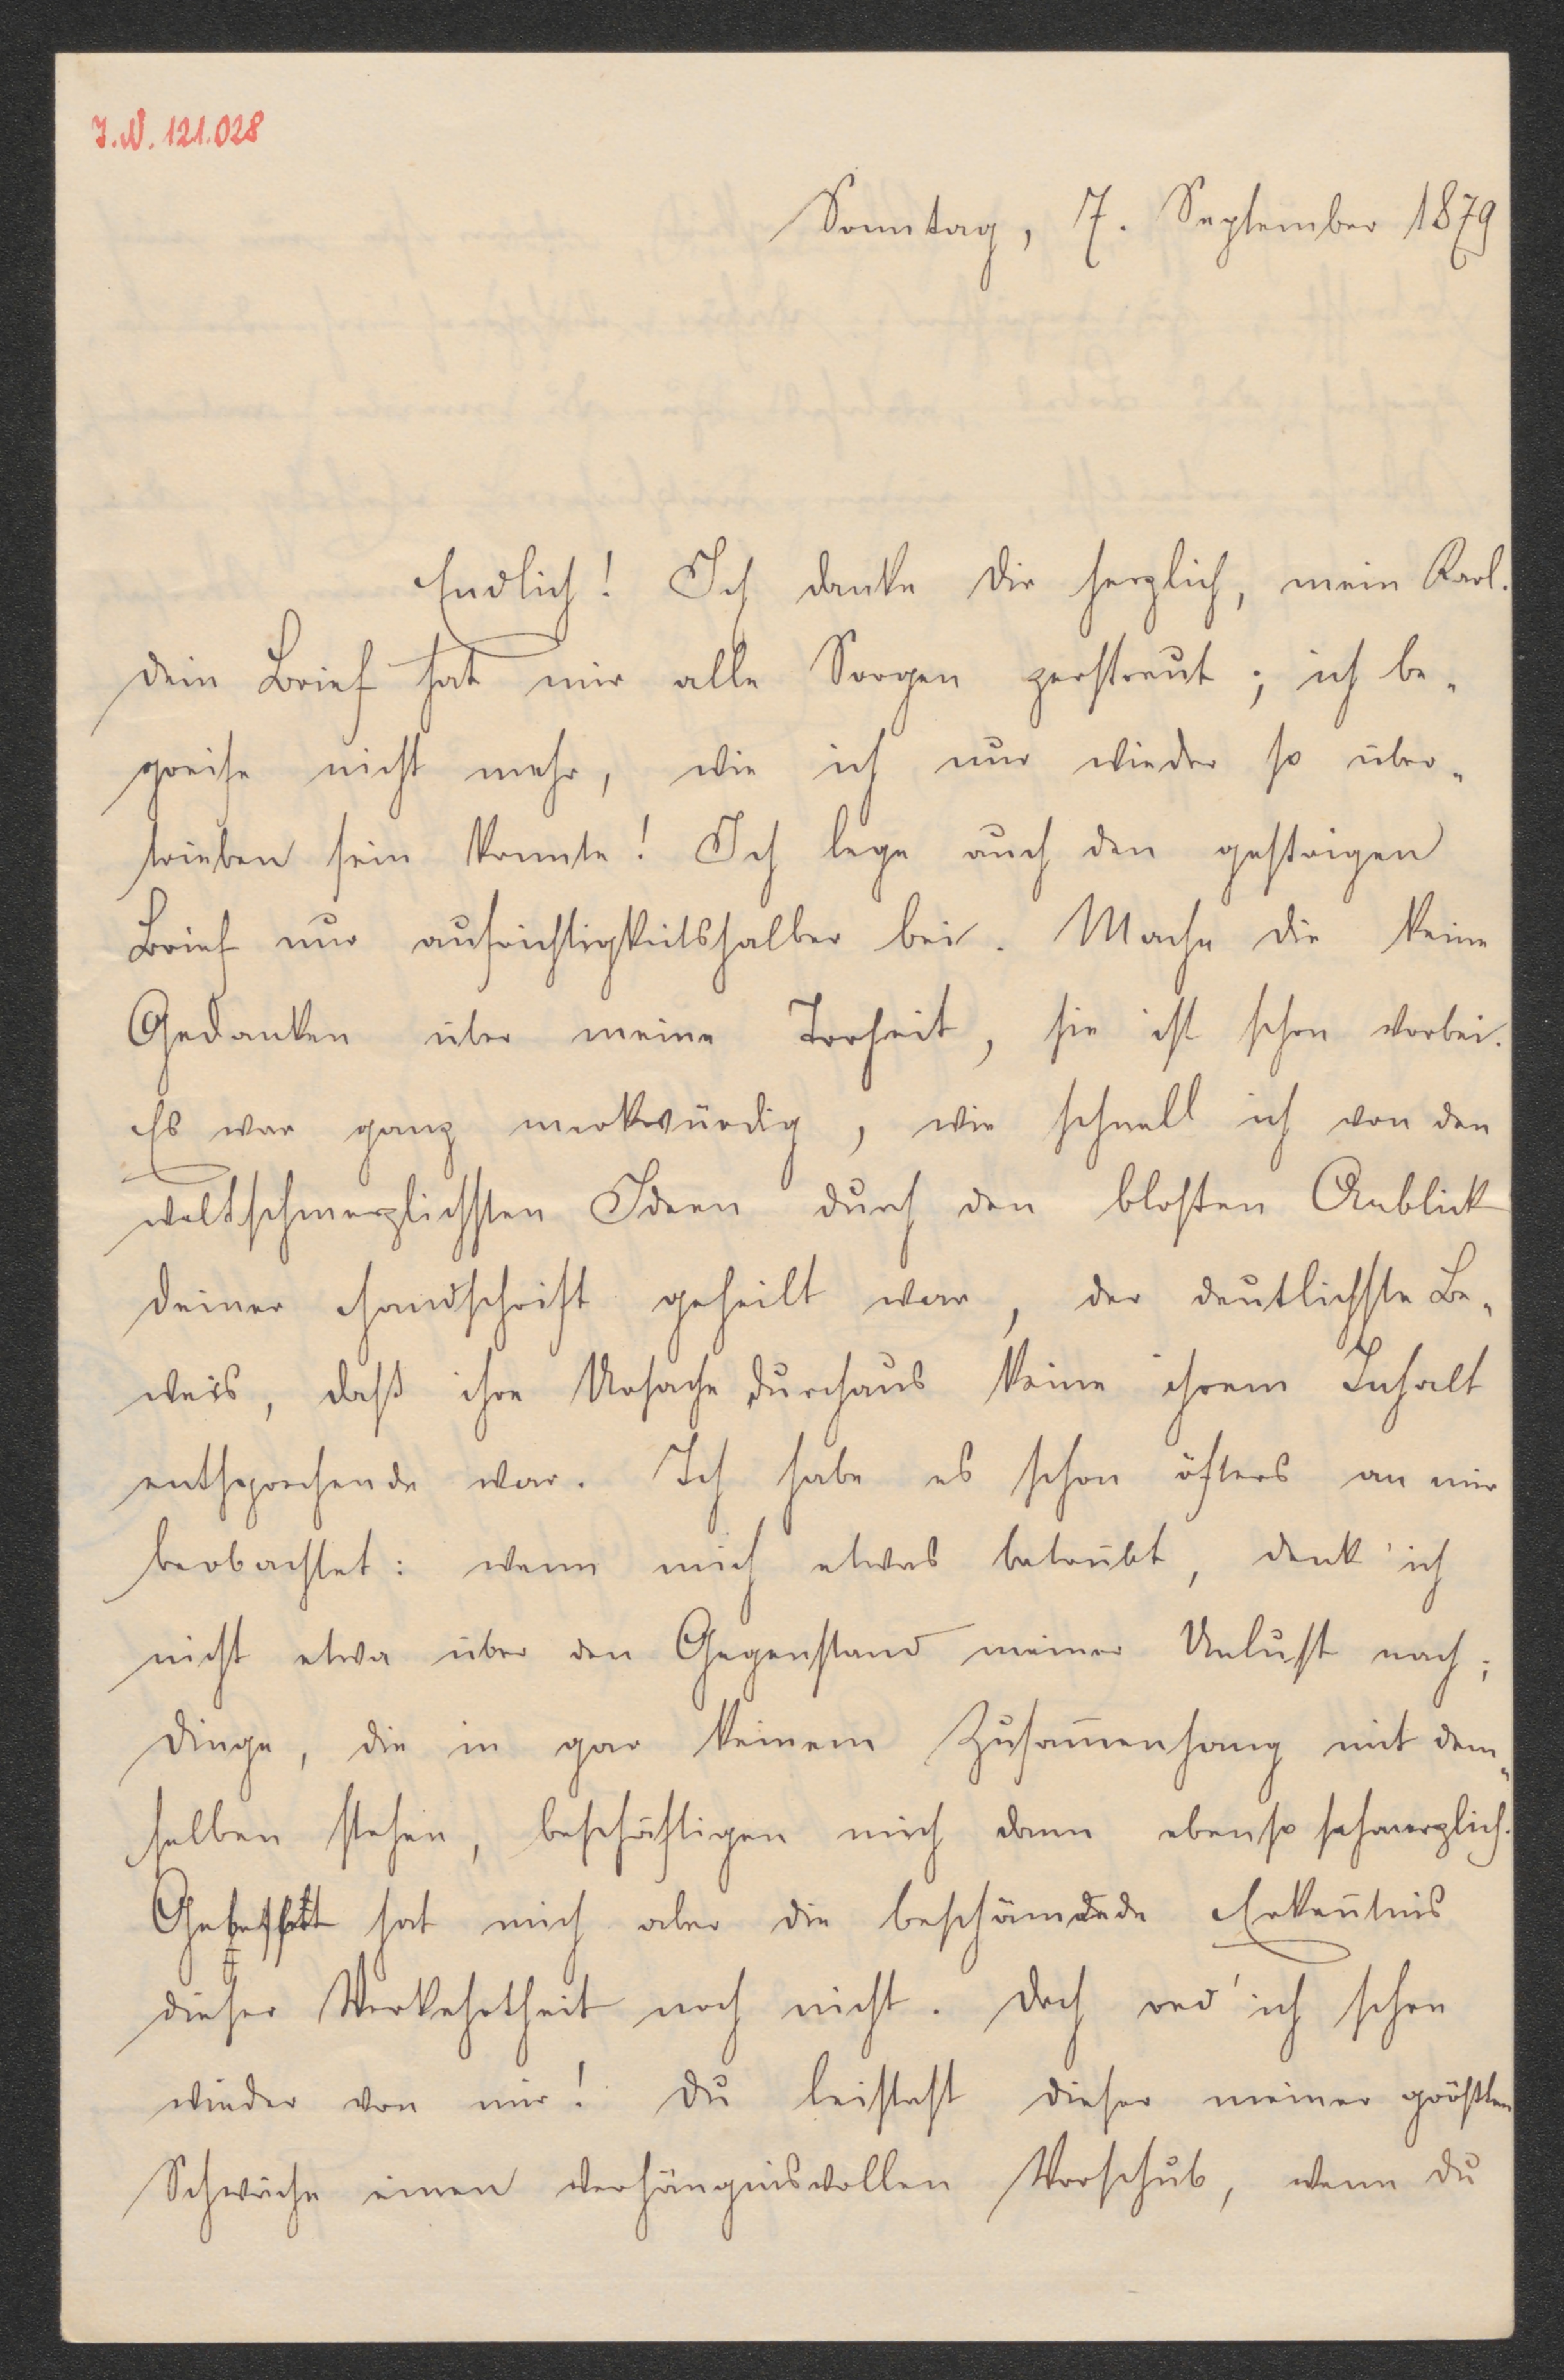 I.N. 121.028
Sonntag, 7. September 1879
Endlich! Ich danke dir herzlich, mein Karl.
Dein Brief hat mir alle Sorgen zerstreut; ich be-
greife nicht mehr, wie ich nur wieder so über-
trieben sein konnte! Ich lege auch den gestrigen
Brief nur aufrichtigkeitshalber bei. Mache dir keine
Gedanken über meine Torheit, sie ist schon vorbei.
Es war ganz merkwürdig, wie schnell ich von den
weltschmerzlichsten Ideen durch den bloßen Anblick
deiner Handschrift geheilt war, der deutlichste Be-
weis, daß ihre Ursache durchaus keine ihrem Inhalt
entsprechende war. Ich habe es schon öfters an mir
beobachtet: wenn mich etwas betrübt, denk' ich
nicht etwa über den Gegenstand meiner Unlust nach;
Dinge, die in gar keinem Zusam̅enhang mit dem-
selben stehen, beschäftigen mich dann ebenso schmerzlich.
Gebessert hat mich aber die beschämende Erken̅tnis
dieser Verkehrtheit noch nicht. Doch red' ich schon
wieder von mir! Du leistest dieser meiner größten
Schwäche einen verhängnisvollen Vorschub, wenn du